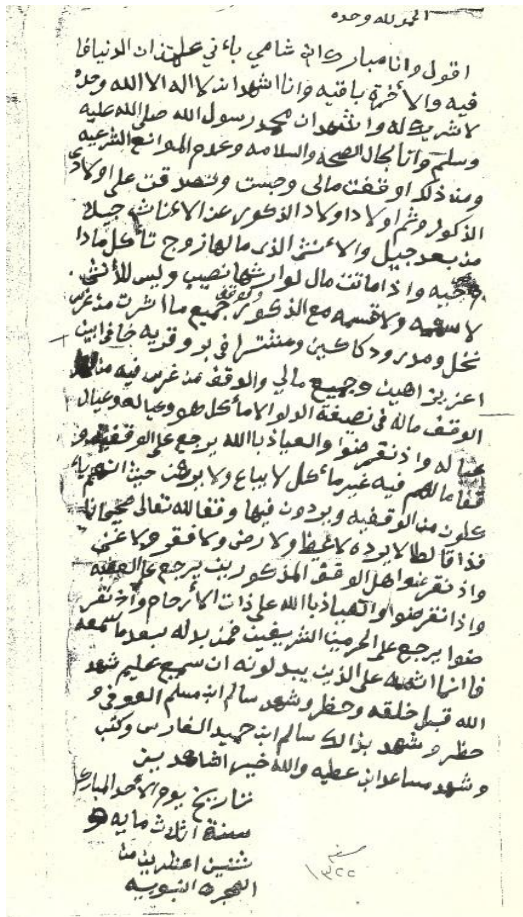 الحمد لله وحده
اقول وانا مبارك ابن شامي باءني علمت ان الدنيا فا
فيه والأخرة باقيه وانا اشهد ان لا اله الا الله وحده
لا شريك له واشهد ان محمد رسول الله صلى الله عليه
وسلم وانا بحال الصحة والسلامه وعدم الموانع الشرعيه
ومن ذلك اوقفت مالي وحبست وتصدقت على اولادي
الذكور وثم اولاد اولاد الذكور عن الاءناث جيلا
من بعد جيل والأنثى الذي مالها زوج تأكل مادا
حيه واذا ماتت مال لوارثها نصيب وليس للأنثى
لا سهمه ولا قسمه مع الذكور جميع ما اثرت من غرس
نخل ومدرود كاكين ومنتشرا في بر وقريه خافي ابين
اعزيز اهين وجميع مالي والوقف من غرس فيه من
الوقف ماله في نصيفة الدلو الا مأكل هو وعياله وعيال
عياله واذ نقرضوا والعياذ با الله يرجع على الوقفيه و
قفا مالهم فيه غير مأكل لا يباع ولا يوهب حيث انهم يأ
كلون من الوقفيه ويردون فيها وقفا لله تعالى صحيحا نا
فذا قالطا لا يرده لا غيظ ولا رضى ولا فقر ولا غنى
واذ نقرضوا اهل الوقف المذكورين يرجع على
واذا نقرضوا والعياذ با الله على ذات الأرحام واذ نقر
ضوا يرجع على الحرمين الشريفين فمن بدله بعد ما سمعه
فا انما اثمه على الذين يبدلونه ان سميع عليم شهد
الله قبل خلقه وحظر وشهد سالم ابن مسلم العوفي و
حظر وشهد بذالك سالم ابن حميد الفارس وكتب
وشهد مساعد ابن عطيه والله خير الشاهدين
تاريخ يوم الأحد المبارك
سنة اثلاث مايه و
ثنين اعشرين من
الهجرة النبوييه
سنه
١٣٢٢